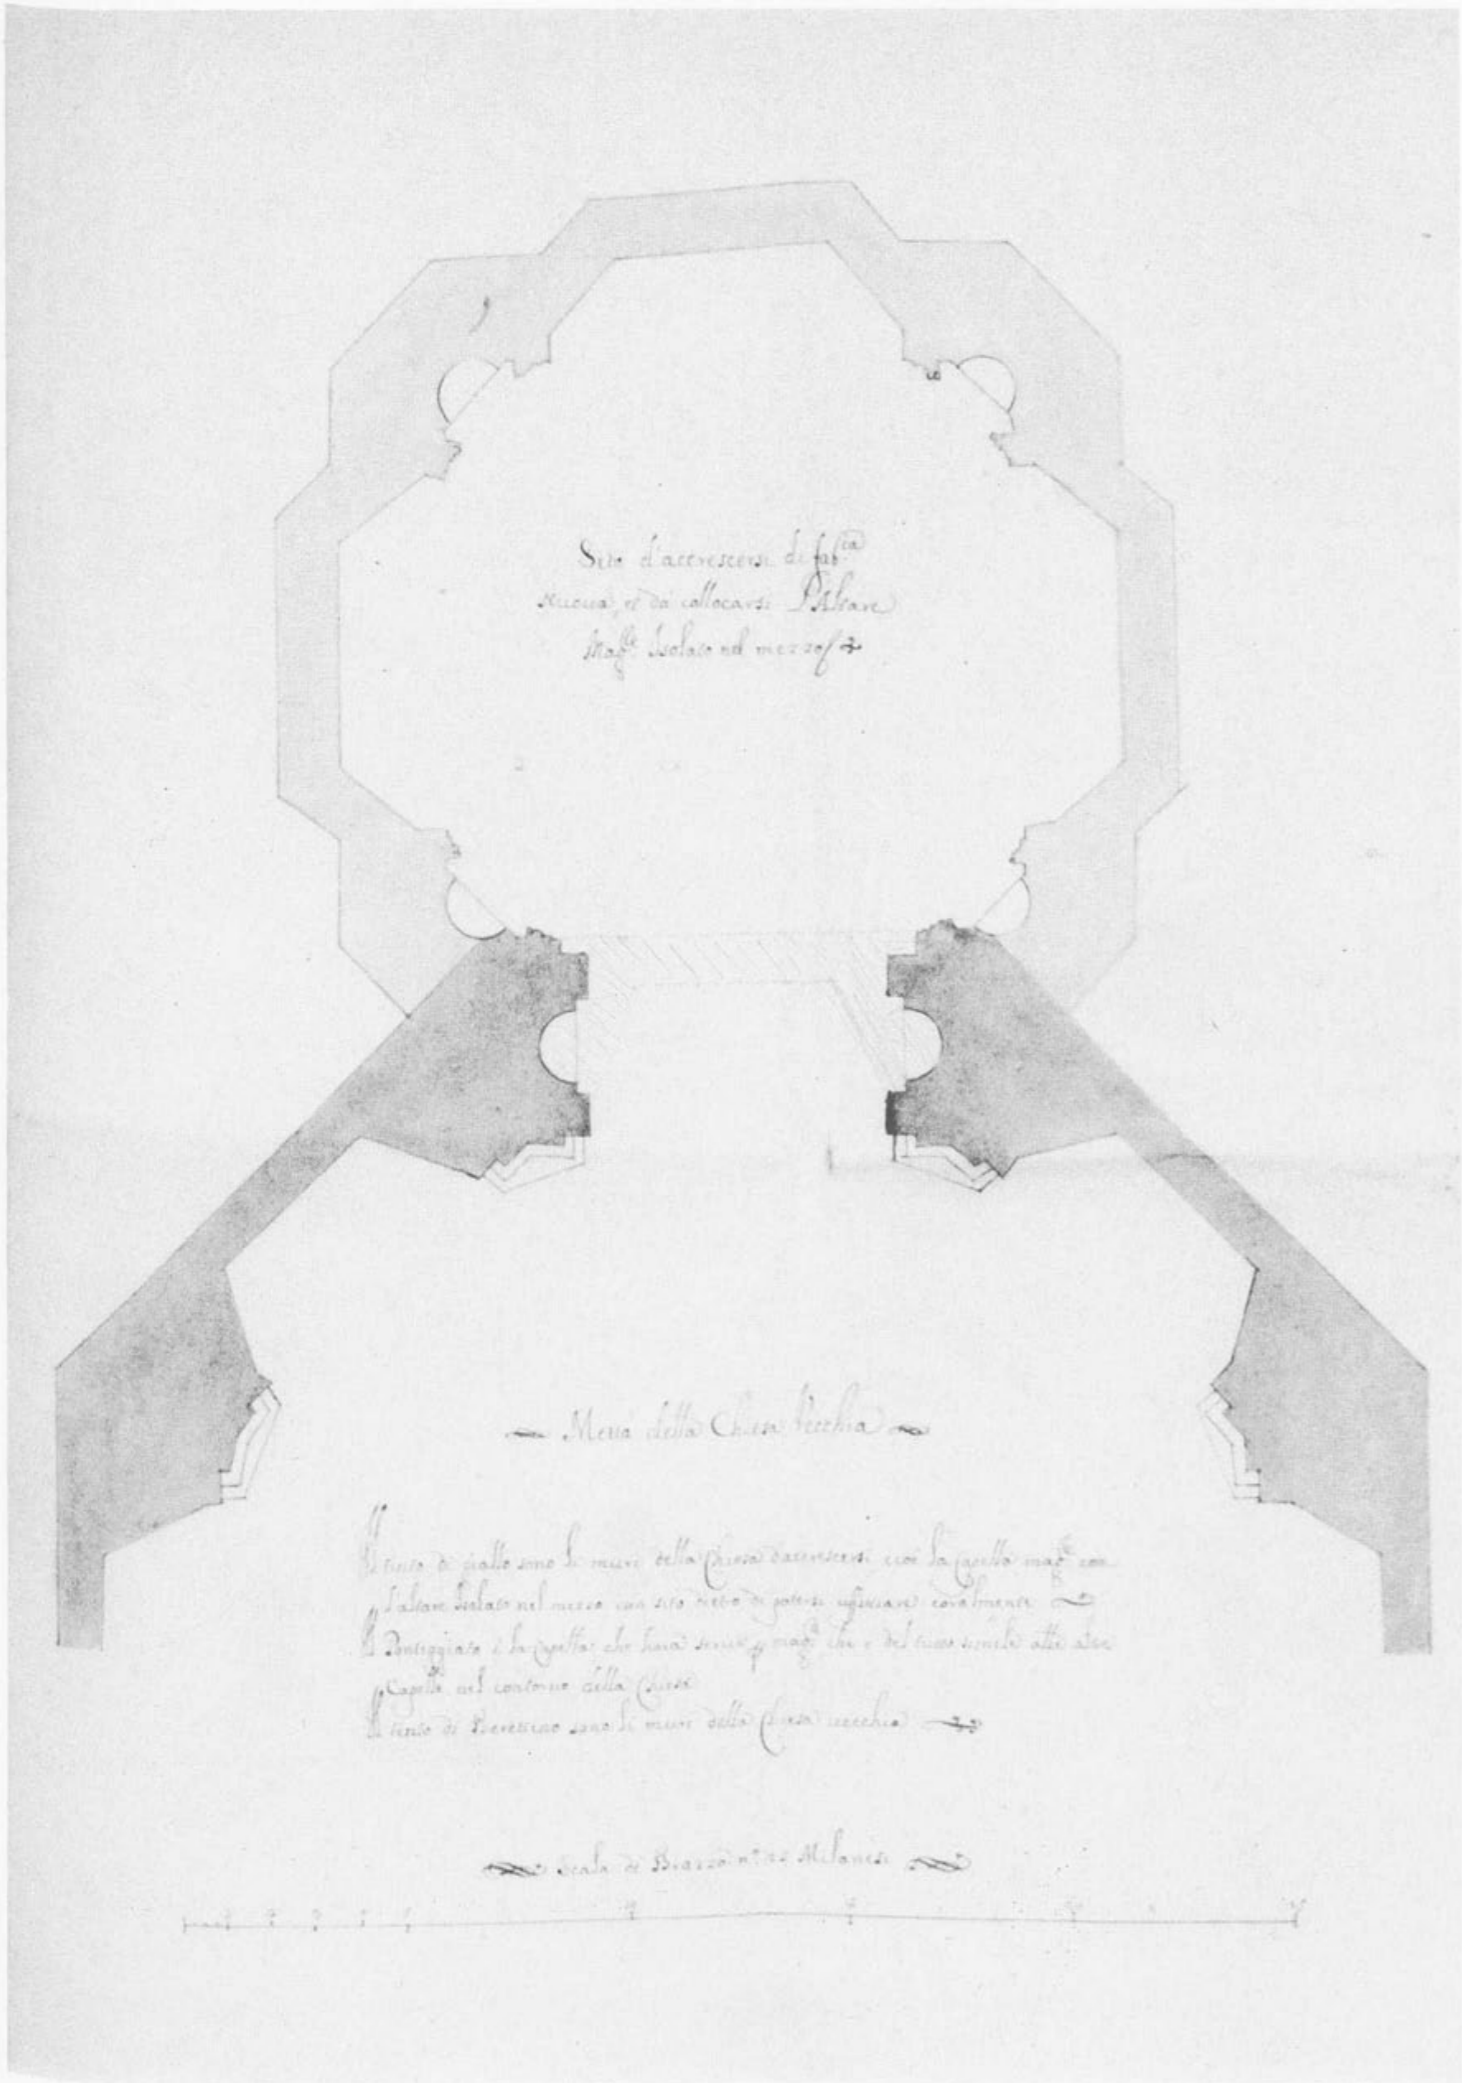 Sito d'accrescersi di fab.ca
nuova, et da collocarsi l'Altare
Mag.re Isolato nel mezzo
Metà della Chiesa Vecchia
Il tinto di giallo sono li muri della Chiesa d'accrescersi cioè la Capella mag.re con
l'altare Isolato nel mezzo con sito dietro di potersi uffitiare coralmente
Il Ponteggiato è la Capella che hora serve p mag.re che è del tutto simile alle altre
Capelle nel contorno della Chiesa
Il tinto di Berettino sono li muri della Chiesa vecchia
Scala di Brazza n.º 25 Milanesi